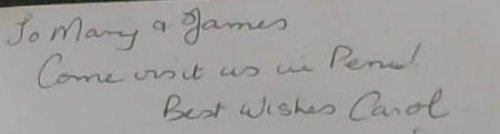 To Mary & James
Come visit us in Peru!
Best Wishes Carol